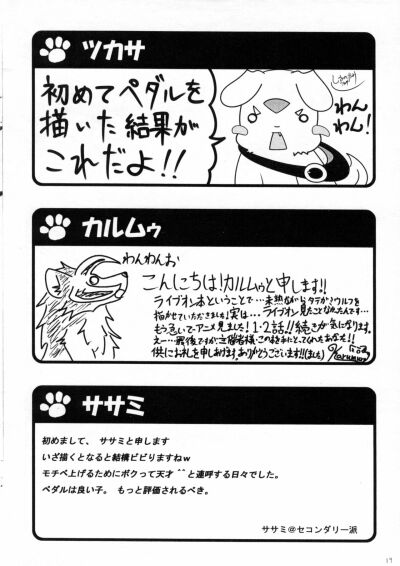 ツカサ
初めてペダルを
描いた結果が
これだよ!!
わん
わん!
カルムゥ
わんわんお
こんにちは!カルムゥと申します!!
ライブオン本ということで…未熟ながらタテガミウルフを
描かせていただきました!実は…ライブオン見たことなかったんです…
もう急いでアニメ見ました!1・2話!!続きが気になります。
えー…最後ですが主催者様・この本を手にとってくれたあなた!!
供にお礼を申しあげます。ありがとうございます!!(ました)
ササミ
初めまして、 ササミと申します
いざ描くとなると結構ビビりますねw
モチベ上げるためにボクって天才^^と連呼する日々でした。
ペダルは良い子。 もっと評価されるべき。
ササミ@セコンダリー派
19